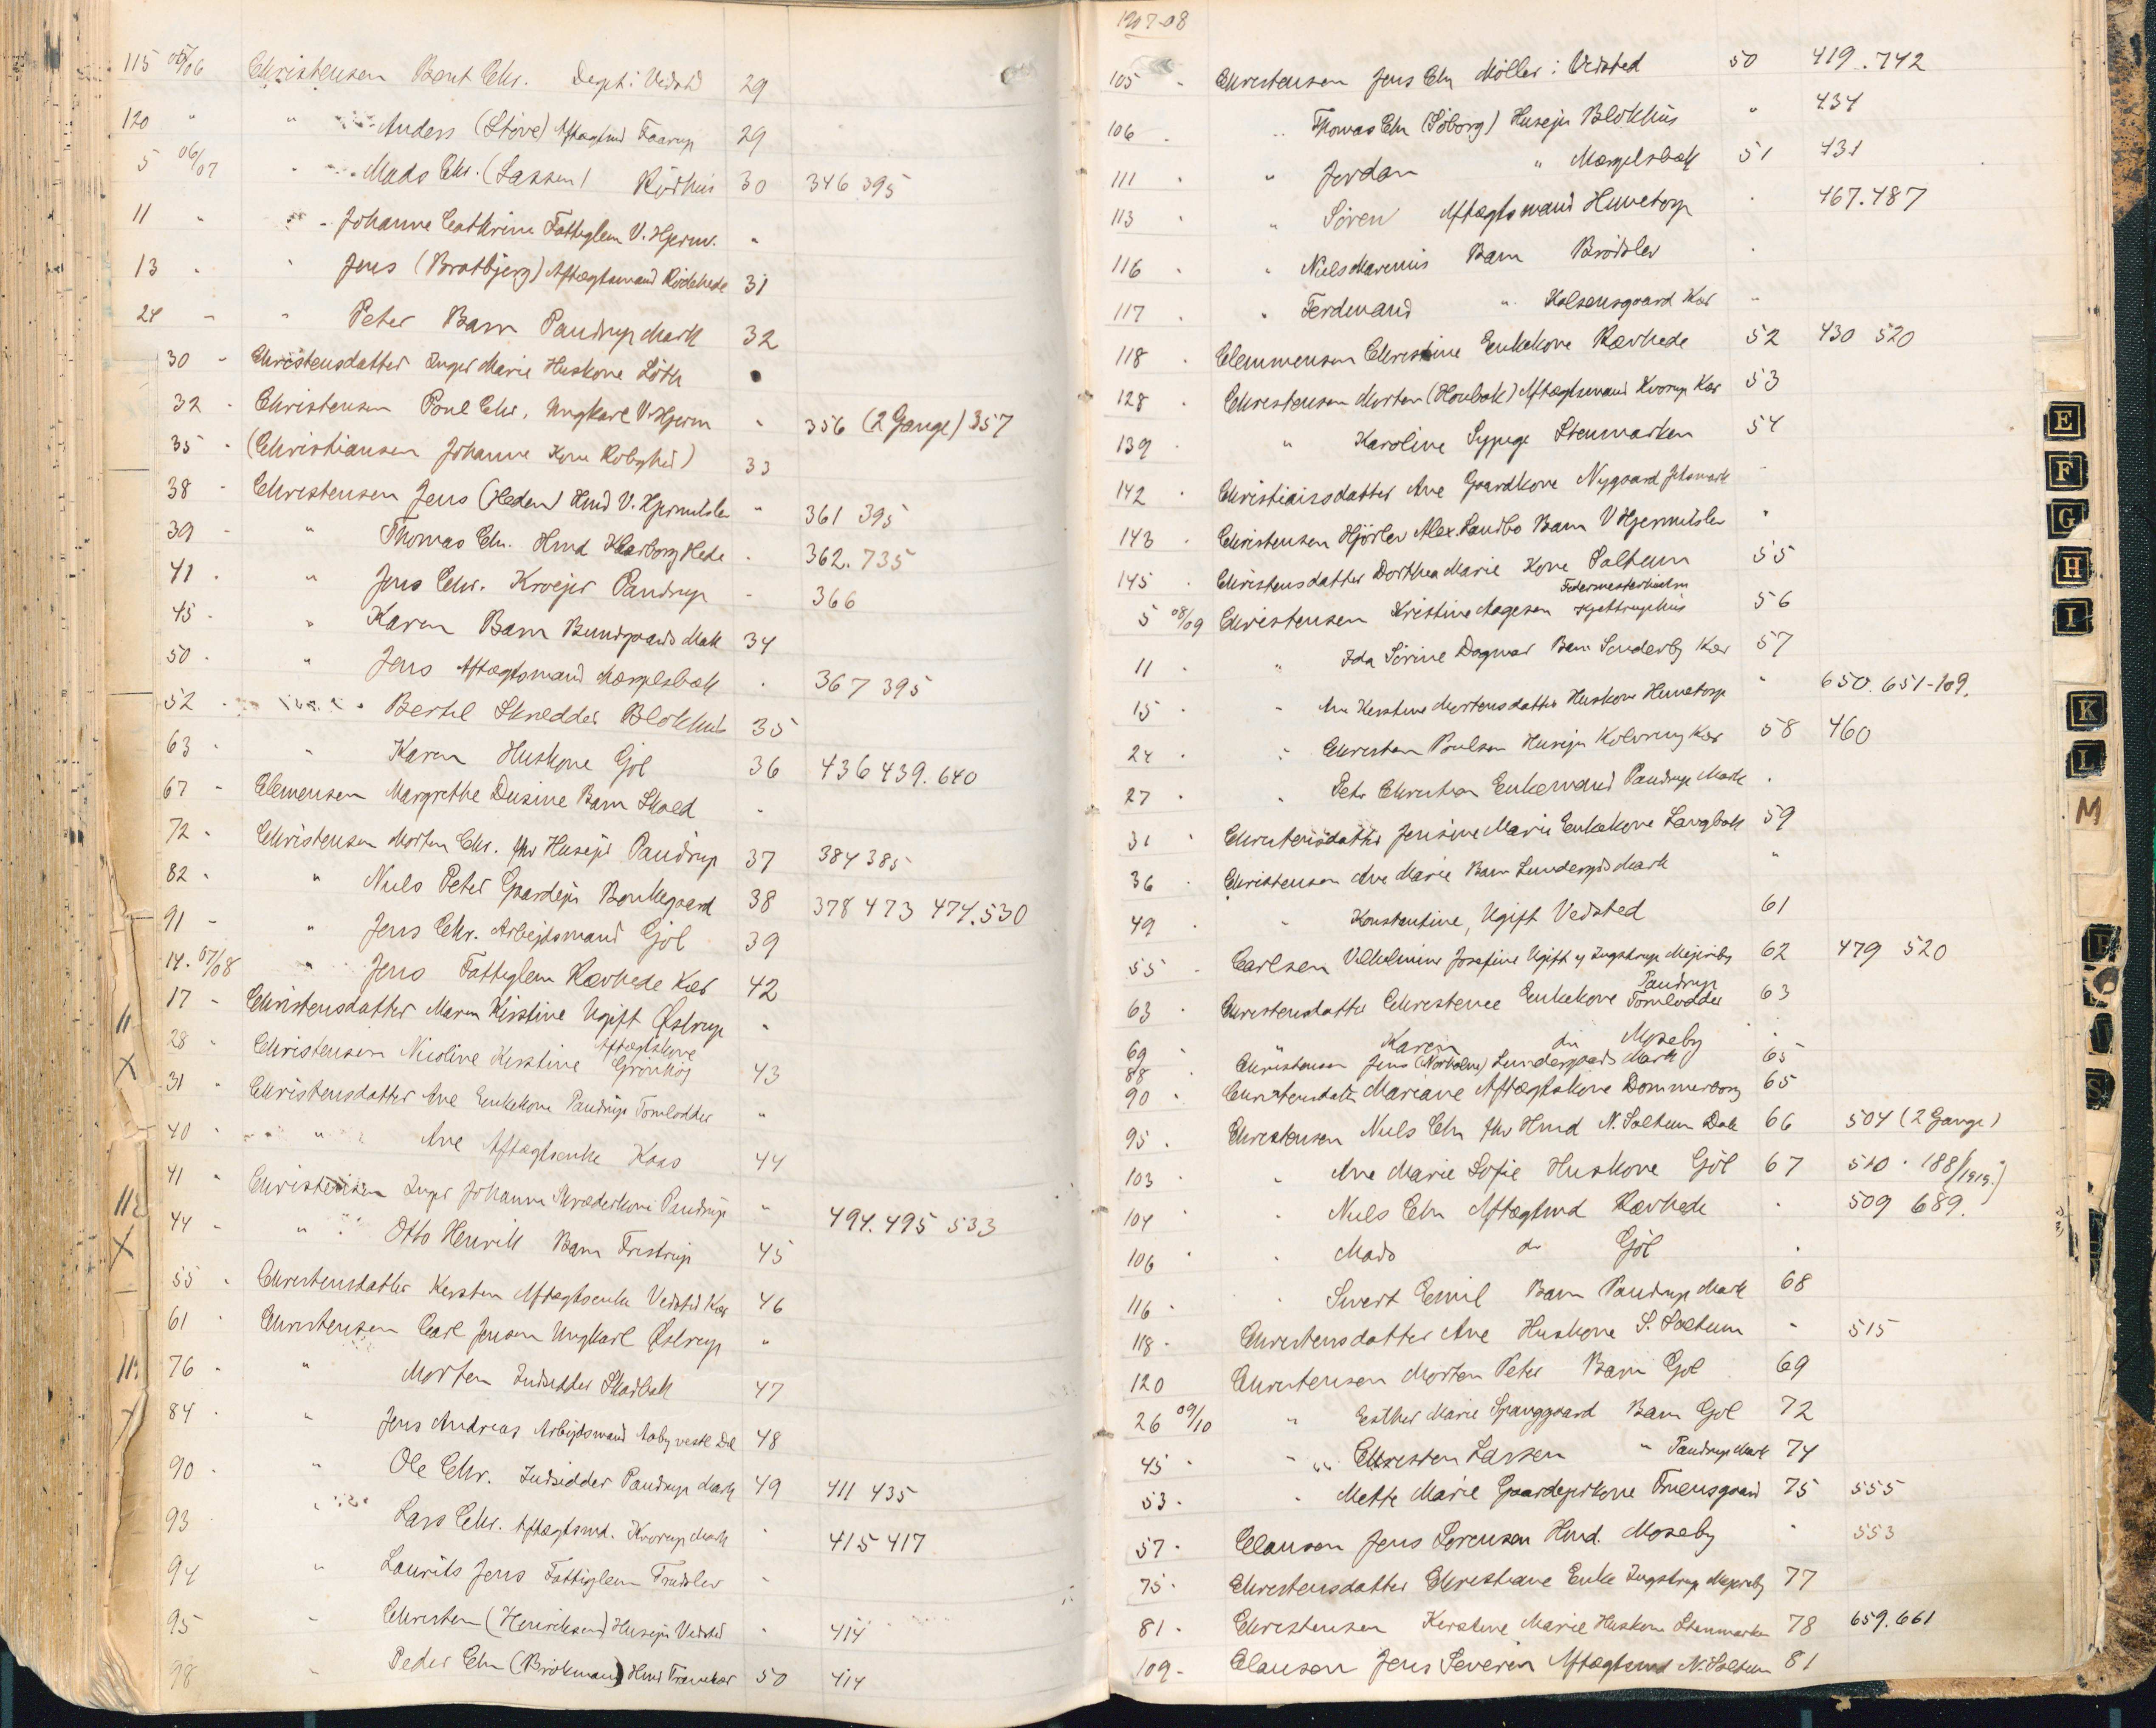 115 05/06 Christensen Bent Chr. Degnt i Vedsted 29
120 " " Anders (Støve) Aftægtmd Faarup 29
5 06/07 " Mads Chr. (Lassen) Rødhus 30 346 395
11 " " Johanne Cathrine Fattiglem V. Hjerm. "
13 " " Jens (Bratbjerg) Aftægtsmand Rødehede 31
24 " " Peter Barn Pandrup Mark 32
30 - Christensdatter Inger Marie Huskone Løth "
32 - Christensen Poul Chr. Ungkarl V Hjerm " 356 (2 Gange) 357
35 - (Christiansen Johanne Kone) 33
38 - Christensen Jens (Heden) Hmd V. Hjermitslev " 361 395
39 - " Thomas Chr. Hmd Klarborg Hede " 362. 735
41 . " Jens Chr. Kroejer Pandrup - 366
45 . " Karen Barn Bundgaards Mark 34
50 . " Jens Aftægtsmand Mærgelsbæk . 367 395
52 . " Bertel Skrædder Blokhus 35
63 . " Karen Huskone Gjøl 36 436 439. 640
67 - Clemensen Margrethe Dusine Barn Skoed "
72 . Christensen Morten Chr. fhv Husejer Pandrup 37 384 385
82 . " Niels Peter Gaardejer Bonkegaard 38 378 473 474. 530
91 - " Jens Chr. Arbejdsmand Gjøl 39
14. 07/08 " Jens Fattiglem Rævhede Kær 42
17 - Christensdatter Maren Kirstine Ugift Østrup "
Aftægtskone
28 " Christensen Nicoline Kirstine Grønhøj 43
31 " Christensdatter Ane Enkekone Pandrup Tomlodder "
40 " " Ane Aftægtsenke Kaas 44
41 " Christensen Inger Johanne Skræderkone Pandrup " 494. 495 533
44 - " Otto Henrik Barn Fristrup 45
55 . Christensdatter Kersten Aftægtsenke Vedsted Kær 46
61 . Christensen Carl Jensen Ungkarl Østrup "
76 - " Morten Indsidder Skadbæk 47
84 . " Jens Andreas Arbejdsmand Aaby vestl Del 48
90 . " Ole Chr. Indsidder Pandrup Mark 49 411 435
93 " Lars Chr. Aftægtsmd. Kvorup Mark " 415 417
94 " Laurits Jens Fattiglem Trudslev "
95 " Christen (Henriksen) Husejer Vedsted " 414
98 " Peder Chr (Brökmand) Hmd Tranekær 50 414
1907-08
105 - Christensen Jens Chr Møller i Vedsted 50 419. 742
106 . " Thomas Chr (Søborg) Husejer Blokhus " 434
111 . " Jordan " Mærgelsbæk 51 431
113 . " Søren Aftægtsmand Hunetorp . 467. 487
116 . " Niels Marenus Barn Brødslev .
117 . " Ferdinand " Kolsensgaard Kær "
118 . Clemmensen Christine Enkekone Rævhede 52 430 520
128 . Christensen Morten (Houbak) Aftægtsmand Kvorup Kær 53
139 . " Karoline Sypige Stenmarken 54
142 . Christiansdatter Ane Gaardkone Nygaard Jetsmark "
143 . Christensen Hjørlev Alex. Landbo Barn V Hjermitslev "
145 . Christensdatter Dorthea Marie Kone Saltum 55
5 08/09 Christensen Kristine Aagesen Kjettruphus 56
11 . " Ida Sørine Dagmar Barn Sønderby Kær 57
15 . " Ane Kirstine Mortensdatter Huskone Hunetorp " 650. 651-109.
24 . " Christen Poulsen Husejer Kolvrung Kær 58 460
27 . " Peter Christian Enkemand Pandrup Mark .
31 . Christensdatter Jensine Marie Enkekone Langbæk 59
36 . Christensen Ane Marie Barn Lundergrds Mark "
49 . " Konstantine, Ugift Vedsted 61
55 - Carlsen Vilhelmine Josefine Ugift af Ingstrup Mejeriby 62 479 520
Pandrup
63 . Christensdatter Christence Enkekone Tomlodder 63
69 . " Karen do Moseby "
88 . Christensen Jens (Norholm) Lundergaards Mark 65
90 . Christensdatr Mariane Aftægtskone Dommerborg 65
95 . Christensen Niels Chr fhv Hmd N. Saltum Dale 66 504 (2 Gange)
103 " Ane Marie Sofie Huskone Gjøl 67 510 . 188/1919.)
104 " Niels Chr Aftægtmd Rævhede . 509 689.
106 . " Mads do Gjøl .
116 . " Sivert Emil Barn Pandrup Mark 68
118 - Christensdatter Ane Huskone S. Saltum " 515
120 Christensen Morten Peter Barn Gjøl 69
26 09/10 " Esther Marie Spanggaard Barn Gjøl 72
45 . " Christen Larsen " Pandrup Mark 74
53 . " Mette Marie Gaardejerkone Fruensgaard 75 555
57 . Clausen Jens Sørensen Hmd. Moseby " 553
75 . Christensdatter Christiane Enke Ingstrup Mejeriby 77
81 . Christensen Kirstine Marie Huskone Stenmarken 78 659. 661
109 - Clausen Jens Severin Aftægtsmd N. Saltum 81
E
F
G
H
I
K
L
M
S